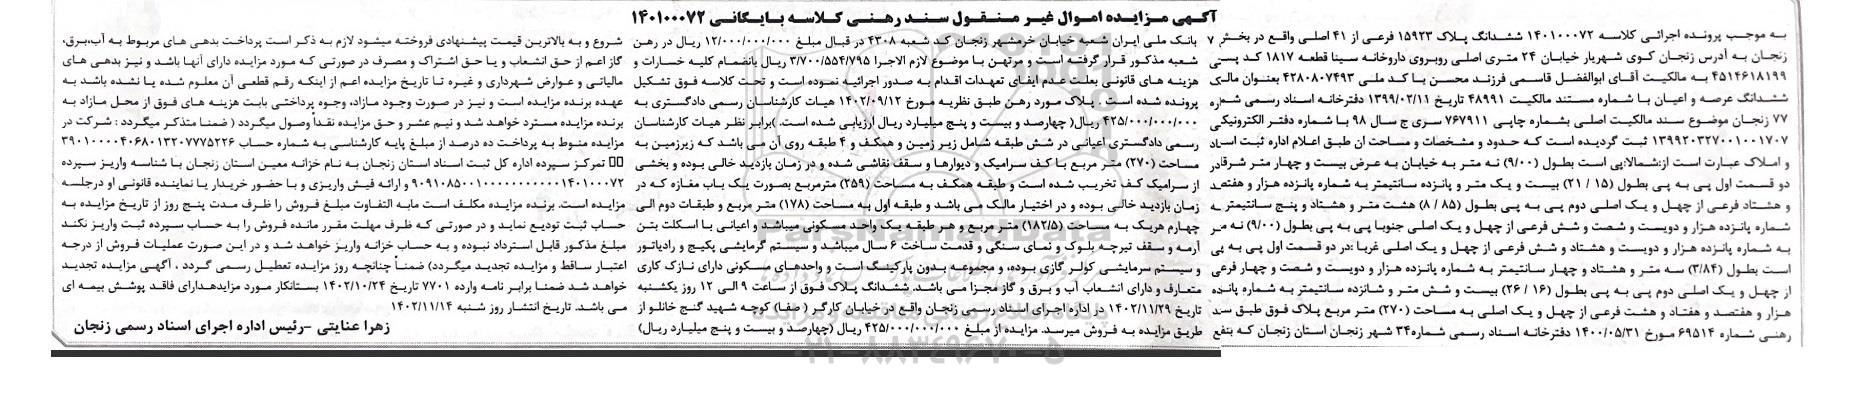 آگهی مزایده اموال غیر منقول سند رهنی کلاسه بایگانی ۱۴۰۱۰۰۰۷۲
به موجب پرونده اجرائی کلاسه ۱۴۰۱۰۰۰۷۲ ششدانگ پلاک ۱۵۹۲۳ فرعی از ۴۱ اصلی واقع در بخش ۷
زنجان به آدرس زنجان کوی شهریار خیابان ۲۴ متری اصلی روبروی داروخانه سینا قطعه ۱۸۱۷ کد پستی
۴۵۱۴۶۱۸۱۹۹ به مالکیت آقای ابوالفضل قاسمی فرزند محسن با کد ملی ۴۲۸۰۸۰۷۴۹۳ بعنوان مالک
ششدانگ عرصه و اعیان با شماره مستند مالکیت ۴۸۹۹۱ تاریخ ۱۳۹۹/۰۲/۱۱ دفترخانه اسناد رسمی شماره
۷۷ زنجان موضوع سند مالکیت اصلی بشماره چاپی ۷۶۷۹۱۱ سری ج سال ۹۸ با شماره دفتر الکترونیکی
۱۳۹۹۲۰۳۲۷۰۰۱۰۰۱۷۰۷ ثبت گردیده است که حدود و مشخصات و مساحت ان طبق اعلام اداره ثبت اسناد
و املاک عبارت است از:شمالا:پی است بطول (۹/۰۰) نه متر به خیابان به عرض بیست و چهار متر شرقا:در
دو قسمت اول پی به پی بطول (۱۵ / ۲۱) بیست و یک متر و پانزده سانتیمتر به شماره پانزده هزار و هفتصد
و هشتاد فرعی از چهل و یک اصلی دوم پی به پی بطول (۸۵ / ۸) هشت متر و هشتاد و پنج سانتیمتر به
شماره پانزده هزار و دویست و شصت و شش فرعی از چهل و یک اصلی جنوبا پی به پی بطول (۹/۰۰) نه متر
به شماره پانزده هزار و دویست و هشتاد و شش فرعی از چهل و یک اصلی غربا :در دو قسمت اول پی به پی
است بطول (۳/۸۴) سه متر و هشتاد و چهار سانتیمتر به شماره پانزده هزار و دویست و شصت و چهار فرعی
از چهل و یک اصلی دوم پی به پی بطول (۱۶ / ۲۶) بیست و شش متر و شانزده سانتیمتر به شماره پانزده
هزار و هفتصد و هفتاد و هشت فرعی از چهل و یک اصلی به مساحت (۲۷۰) متر مربع پلاک فوق طبق سند
رهنی شماره ۶۹۵۱۴ مورخ ۱۴۰۰/۰۵/۳۱ دفترخانه اسناد رسمی شماره۳۴ شهر زنجان استان زنجان که بنفع
بانک ملی ایران شعبه خیابان خرمشهر زنجان کد شعبه ۴۳۰۸ در قبال مبلغ ۱۲/۰۰۰/۰۰۰/۰۰۰ ریال در رهن
شعبه مذکور قرار گرفته است و مرتهن با موضوع لازم الاجرا ۳/۷۰۰/۵۵۴/۷۹۵ ریال بانضمام کلیه خسارات و
هزینه های قانونی بعلت عدم ایفای تعهدات اقدام به صدور اجرائیه نموده است و تحت کلاسه فوق تشکیل
پرونده شده است . پلاک مورد رهن طبق نظریه مورخ ۱۴۰۲/۰۹/۱۲ هیات کارشناسان رسمی دادگستری به
۴۲۵/۰۰۰/۰۰۰/۰۰۰ ریال( چهارصد و بیست و پنج میلیارد ریال ارزیابی شده است. )برابر نظر هیات کارشناسان
رسمی دادگستری اعیانی در شش طبقه شامل زیر زمین و همکف و ۴ طبقه روی آن می باشد که زیرزمین به
مساحت (۲۷۰) متر مربع با کف سرامیک و دیوارها و سقف نقاشی شده و در زمان بازدید خالی بوده و بخشی
از سرامیک کف تخریب شده است و طبقه همکف به مساحت (۲۵۹) مترمربع بصورت یک باب مغازه که در
زمان بازدید خالی بوده و در اختیار مالک می باشد و طبقه اول به مساحت (۱۷۸) متر مربع و طبقات دوم الی
چهارم هریک به مساحت (۱۸۲/۵) متر مربع و هر طبقه یک واحد مسکونی میباشد و اعیانی با اسکلت بتن
آرمه و سقف تیرچه بلوک و نمای سنگی و قدمت ساخت ۶ سال میباشد و سیستم گرمایشی پکیج و رادیاتور
و سیستم سرمایشی کولر گازی بوده و مجموعه بدون پارکینگ است و واحدهای مسکونی دارای نازک کاری
متعارف و دارای انشعاب آب و برق و گاز مجزا می باشد. ششدانگ پلاک فوق از ساعت ۹ الی ۱۲ روز یکشنبه
تاریخ ۱۴۰۲/۱۱/۲۹ در اداره اجرای اسناد رسمی زنجان واقع در خیابان کارگر ( صفا) کوچه شهید گنج خانلو از
طریق مزایده به فروش میرسد. مزایده از مبلغ ۴۲۵/۰۰۰/۰۰۰/۰۰۰ ریال (چهارصد و بیست و پنج میلیارد ریال)
شروع و به بالاترین قیمت پیشنهادی فروخته میشود لازم به ذکر است پرداخت بدهی های مربوط به آب،برق،
گاز اعم از حق انشعاب و یا حق اشتراک و مصرف در صورتی که مورد مزایده دارای آنها باشد و نیز بدهی های
مالیاتی و عوارض شهرداری و غیره تا تاریخ مزایده اعم از اینکه رقم قطعی آن معلوم شده یا نشده باشد به
عهده برنده مزایده است و نیز در صورت وجود مازاد، وجوه پرداختی بابت هزینه های فوق از محل مازاد به
برنده مزایده مسترد خواهد شد و نیم عشر و حق مزایده نقداً وصول میگردد ( ضمنا متذکر میگردد : شرکت در
مزایده منوط به پرداخت ده درصد از مبلغ پایه کارشناسی به شماره حساب ۳۹۰۱۰۰۰۰۴۰۶۸۰۱۳۲۰۷۷۷۵۲۲۶
تمرکز سپرده اداره کل ثبت اسناد استان زنجان به نام خزانه معین استان زنجان با شناسه واریز سپرده
۹۰۹۱۰۸۵۰۰۱۰۰۰۰۰۰۰۰۰۰۰۱۴۰۱۰۰۰۷۲ و ارائه فیش واریزی و با حضور خریدار یا نماینده قانونی او درجلسه
مزایده است. برنده مزایده مکلف است مابه التفاوت مبلغ فروش را ظرف مدت پنج روز از تاریخ مزایده به
حساب ثبت تودیع نماید و در صورتی که ظرف مهلت مقرر مانده فروش را به حساب سپرده ثبت واریز نکند
مبلغ مذکور قابل استرداد نبوده و به حساب خزانه واریز خواهد شد و در این صورت عملیات فروش از درجه
اعتبار ساقط و مزایده تجدید میگردد) ضمناً چنانچه روز مزایده تعطیل رسمی گردد ، آگهی مزایده تجدید
خواهد شد ضمنا برابر نامه وارده ۷۷۰۱ تاریخ ۱۴۰۲/۱۰/۲۴ بستانکار مورد مزایدهدارای فاقد پوشش بیمه ای
می باشد. تاریخ انتشار روز شنبه ۱۴۰۲/۱۱/۱۴
زهرا عنایتی -رئیس اداره اجرای اسناد رسمی زنجان
ParsNamadData
۰۲۱-۸۸۳۴۹۶۷۰-۵